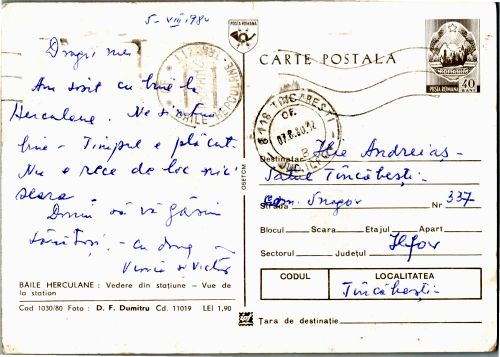 5-VIII 1980
Dragii mei
Am sosit cu bine la
Herculane. Ne simțim
bine - Timpul e plăcut.
Nu e rece de loc nici
seara
Dorim să vă găsim
sănătoși - cu drag
BAILE HERCULANE: Vedere din stațiune - Vue de
la station
Cod 1030/80 Foto: D. F. Dumitru Cd. 11019 LEI 1,90
OBETCM
POSTA ROMANA
BAILE HERCULANE
CARTE POSTALA
POSTA ROMANA 40
BANI
8116 TINCABESTI
OF.
07.8.80.12
JUD. ILFOV
Destinatar Ilie Andreias
Satul Tîncăbești
Strada com. Snagov Nr 337
Blocul Scara Etajul Apart
Sectorul Județul Ilfov
CODUL LOCALITATEA
Tîncăbești
Țara de destinație